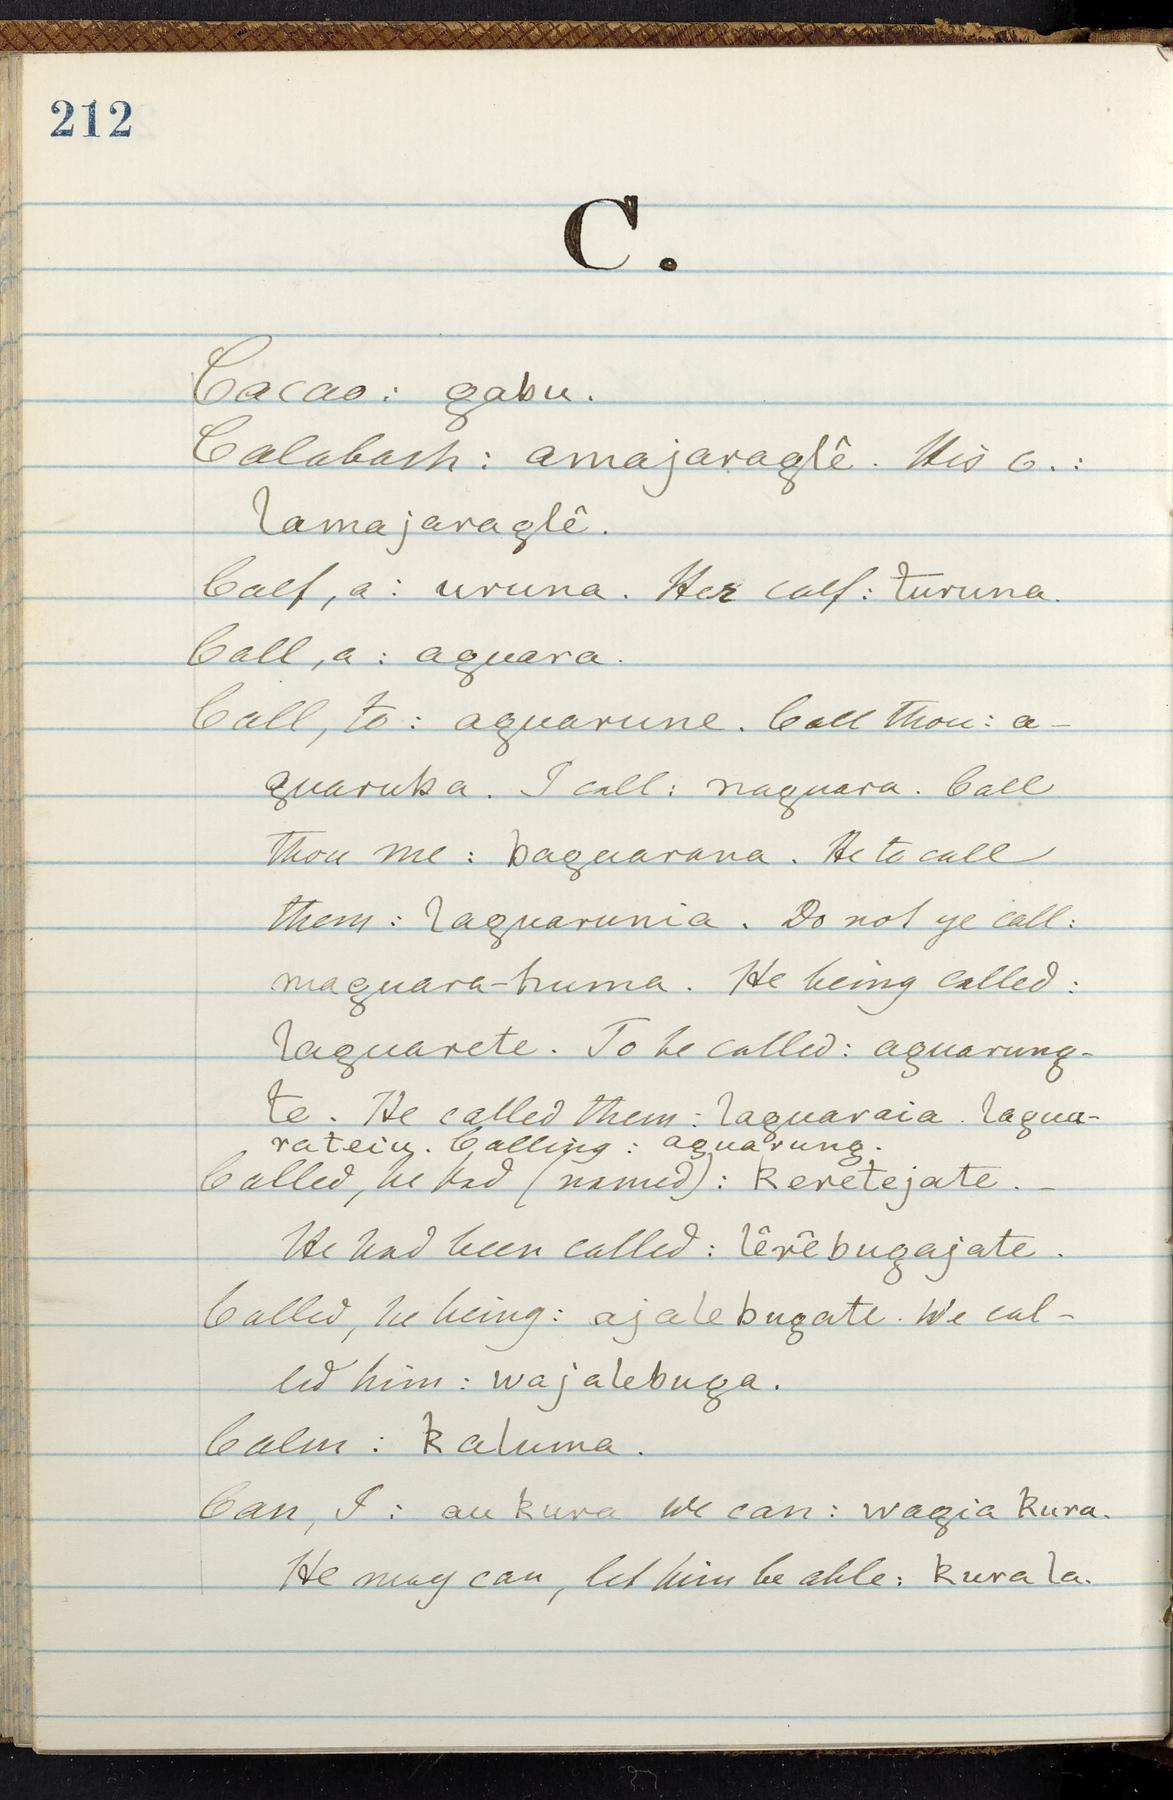 212
C.
Cacao: gabu.
Calabash: amajaraglê. His c.:
lamajaraglê.
Calf, a: uruna. Her calf: turuna.
Call, a: aguara.
Call, to: aguarune. Call thou: a-
guaruba. I call: naguara. Call
thou me: baguarana. He to call
them: laguarunia. Do not ye call:
maguara-huma. He being called:
laguarete. To be called: aguarung-
te. He called them: laguaraia. lagua-
rateiu. Calling: aguarung.
Called, he had (named): keretejate. -
He had been called: lêrêbugajate.
Called, he being: ajalebugate. We cal-
led him: wajalebuga.
Calm: kaluma.
Can, I: au kura We can: wagia kura.
He may can, let him be able: kura la.